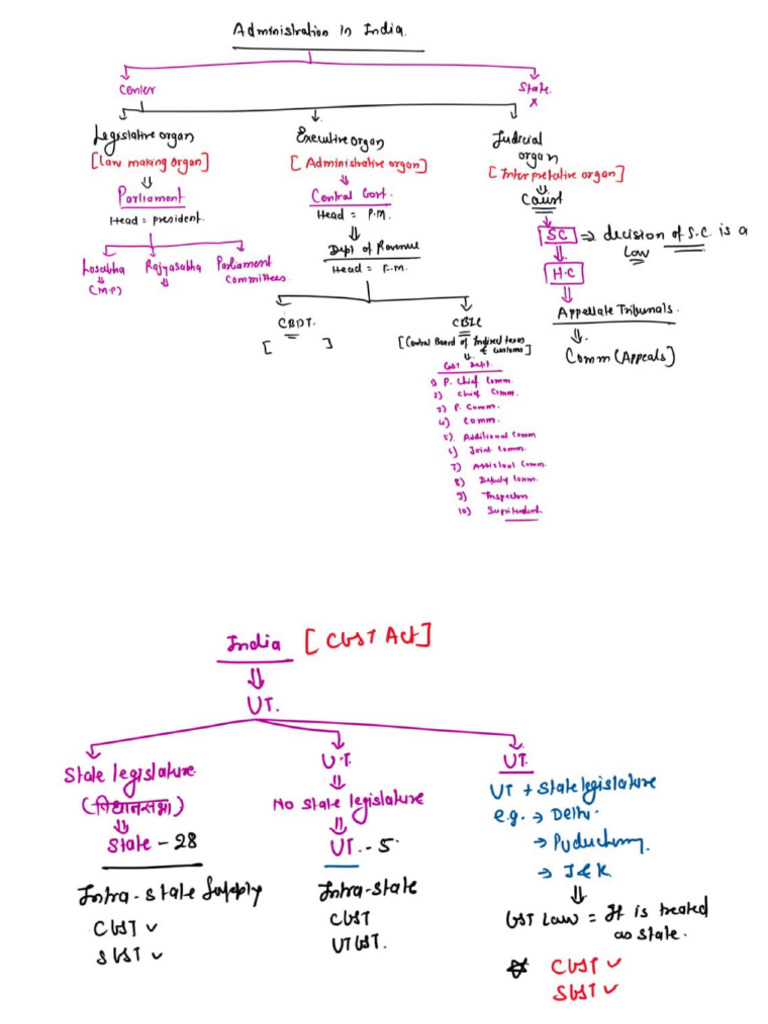 Administration in India.
Center
State.
x
Legislative organ
[Law making organ]
Parliament
Head = president.
Losabha
(M.P)
Rajyasabha
Parliament
Committees.
Executive organ
[Administrative organ]
Central Govt.
Head = P.M.
Dept of Revenue
Head = F.M.
CBDT.
[ ]
CBIC
[Central Board of Indirect taxes
& customs]
GST Dept.
1) P. Chief Comm.
2) Chief Comm.
3) P. Comm.
4) Comm.
5) Additional Comm
6) Joint Comm.
7) Assistant Comm.
8) Deputy Comm.
9) Inspector
10) Supritendent.
Judicial
organ
[Interpretative organ]
Court
SC ⇒ decision of S.C. is a
Law
H.C
Appellate Tribunals.
Comm (Appeals]
India [CGST Act]
UT.
State legislature
(विधानसभा)
State - 28
Intra-state Supply
CGST ✓
SGST ✓
U.T.
No state legislature
UT. - 5
Intra-state
CGST
UTGST.
UT.
UT + State legislature
e.g. → Delhi.
→ Puducherry.
→ J&K
GST Law = It is treated
as state.
☆ CGST ✓
SGST ✓